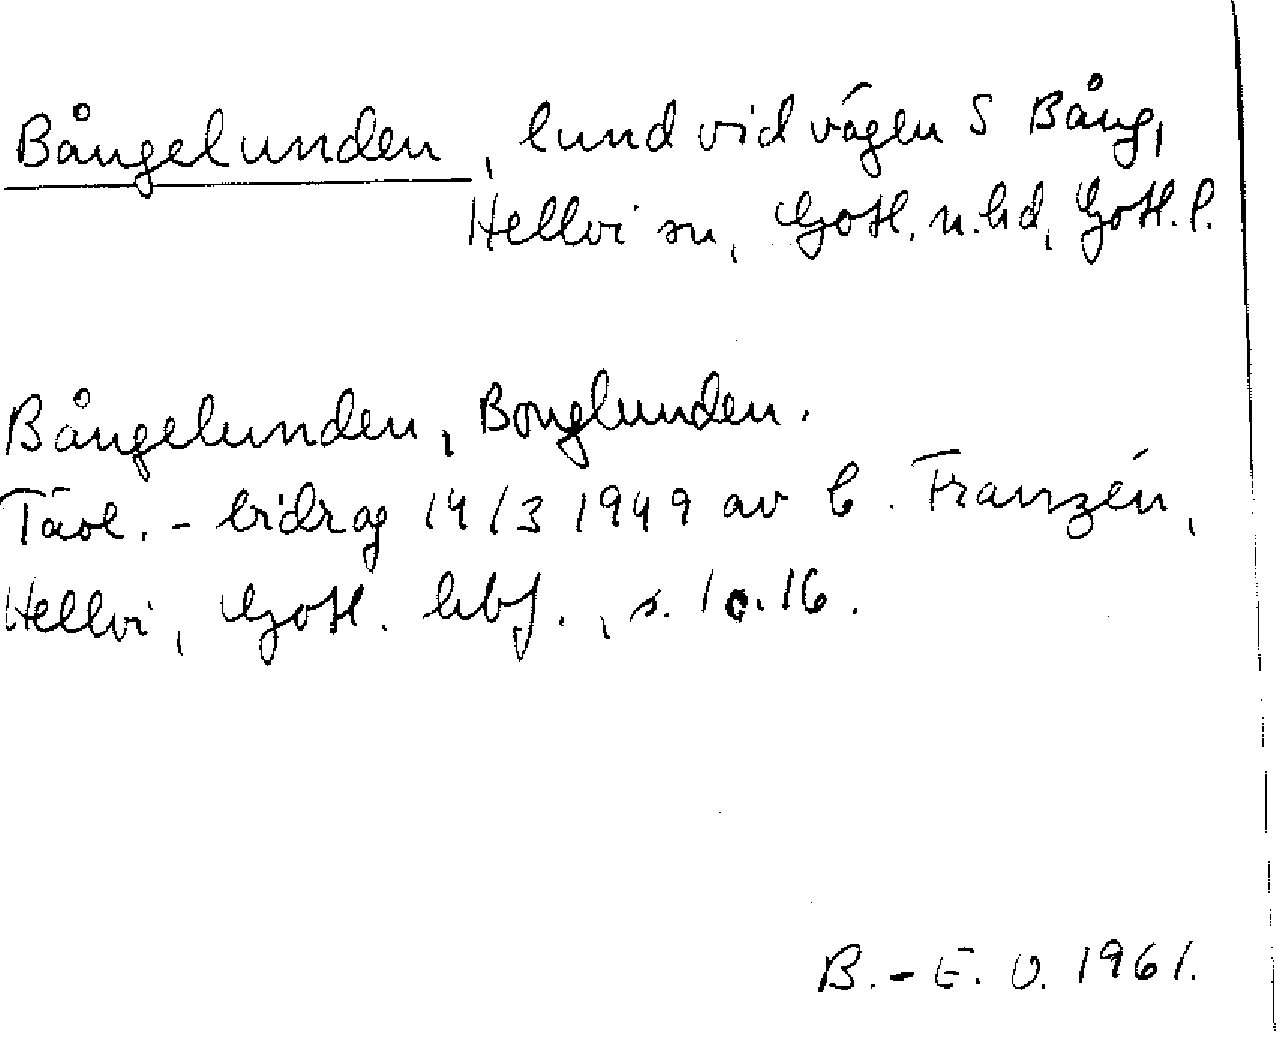 Bångelunden, lund vid vägen S Bång,
Hellvi sn, Gotl. n. hd, Gotl. l.
Bångelunden, Bonglunden.
Tävl. - bidrag 14/3 1949 av C. Franzén,
Hellvi, Gotl. hbf., s. 10.16.
B. - E. O. 1961.